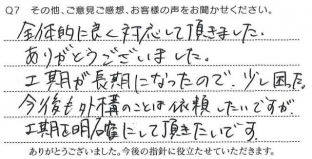 Q7 その他、ご意見ご感想、お客様の声をお聞かせください。
全体的に良く対応して頂きました.
ありがとうございました.
工期が長期になったので、少し困った。
今後も外構のことは依頼したいですが
工期を明確にして頂きたいです.
ありがとうございました。今後の指針に役立たせていただきます。